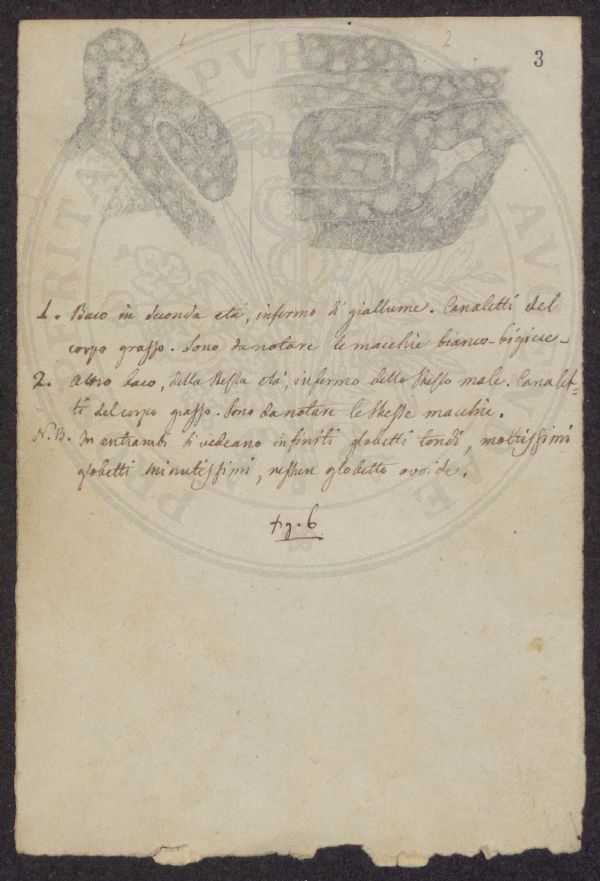 1
2
3
1. Baco in seconda età, infermo di giallume. Canaletti del
corpo grasso. Sono da notare le macchie bianco-bigicie-
2. Altro baco, della stessa età, infermo dello stesso male. Canalet-
ti del corpo grasso. Sono da notare le stesse macchie.
N.B. In entrambi si vedeano infiniti globetti tondi, moltissimi
globetti minutissimi, nessun globetto ovoide.
fig. 6